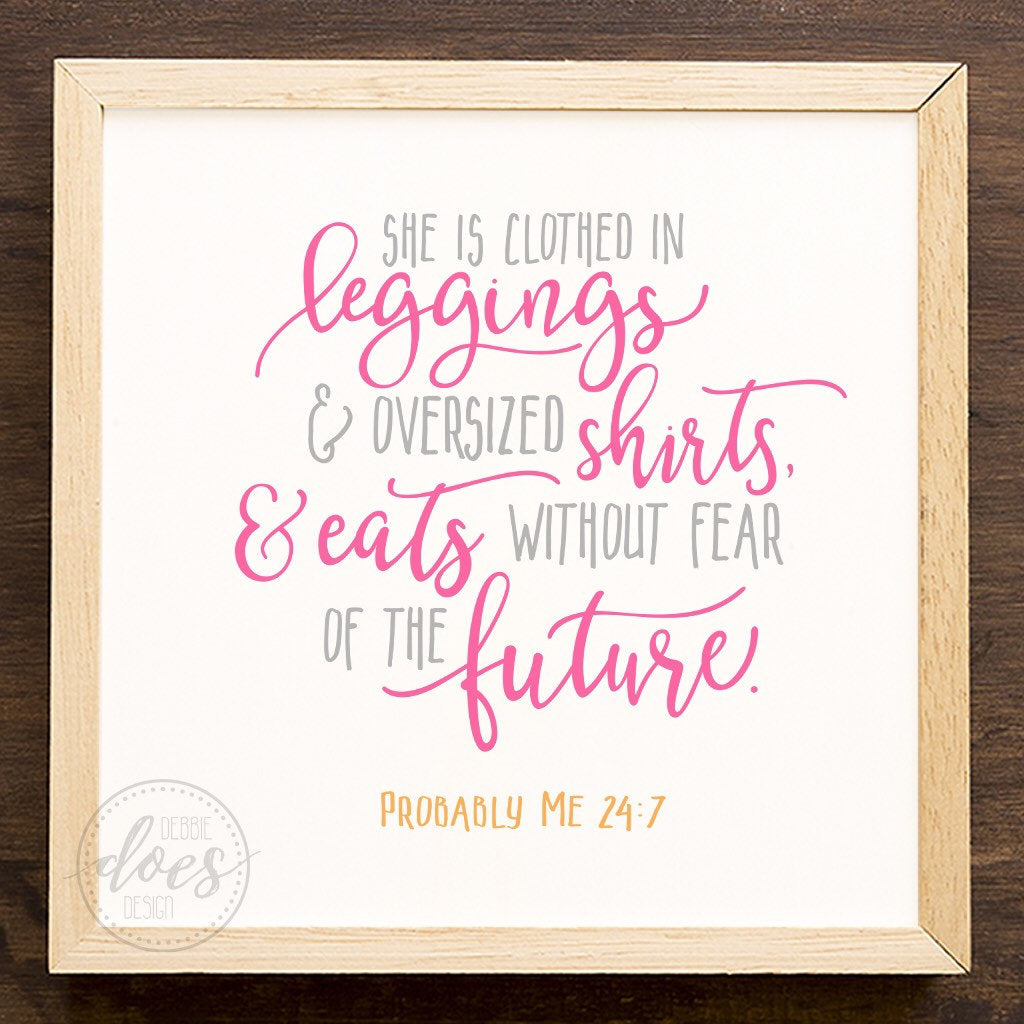 SHE IS CLOTHED IN
leggings
& OVERSIZED shirts,
& eats WITHOUT FEAR
OF THE future.
PROBABLY ME 24:7
DEBBIE
does
DESIGN